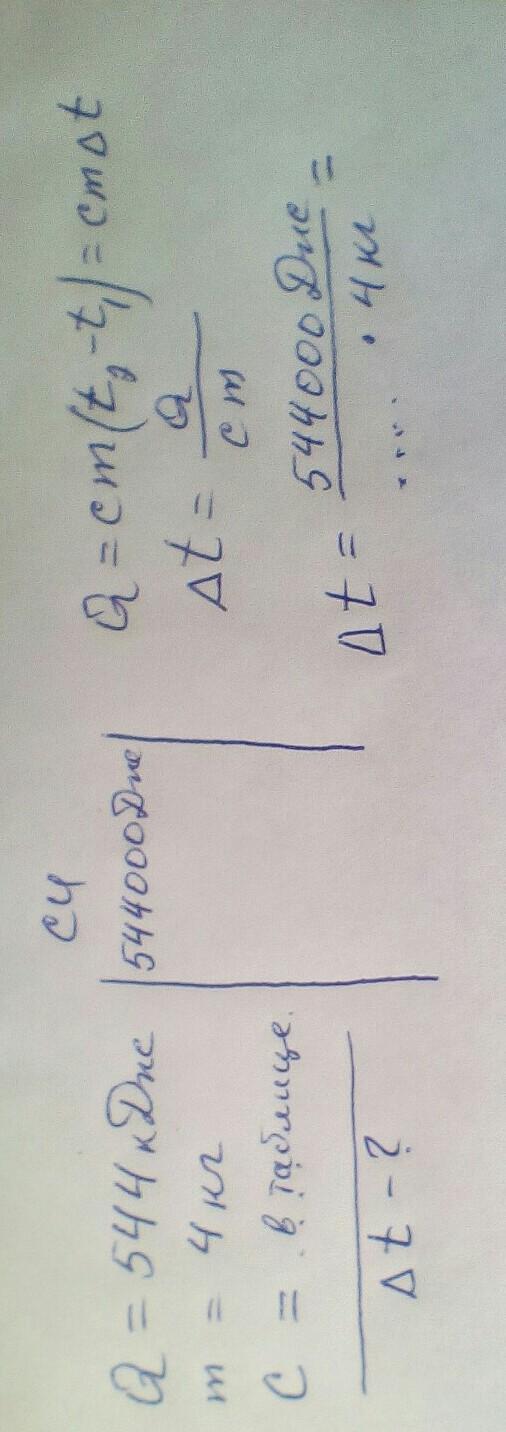 Q = 544 кДж
m = 4 кг
C = в таблице.
Δt - ?
СИ
544000Дж
Q = cm(t₂ - t₁) = cmΔt
Δt = Q / cm
Δt = 544000 Дж / .... · 4 кг =